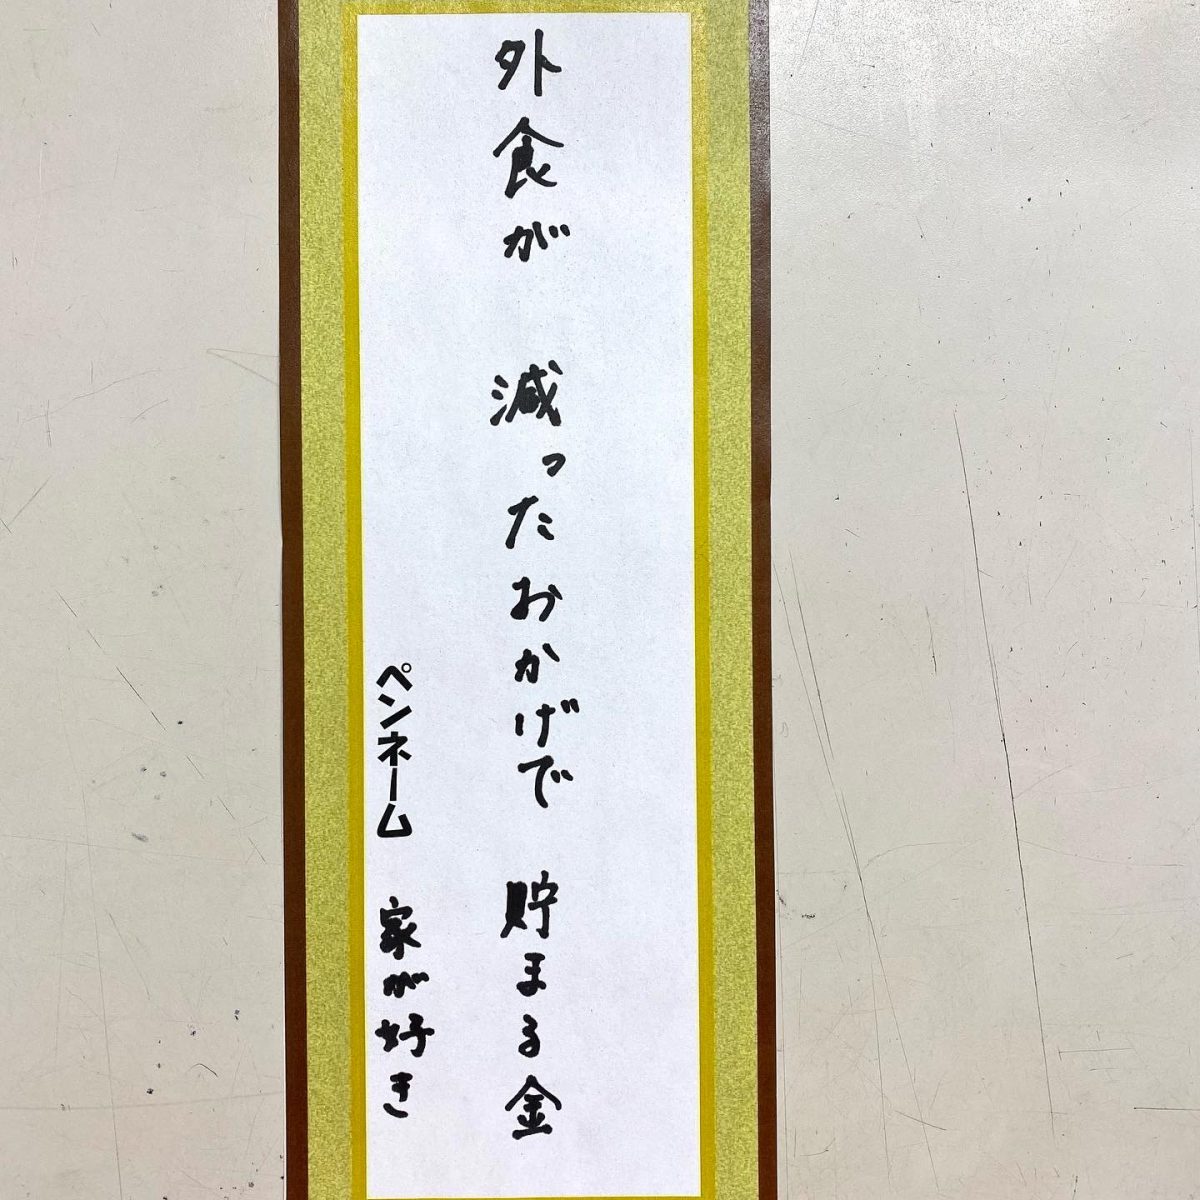 外食が 減ったおかげで 貯まる金
ペンネーム 家が好き